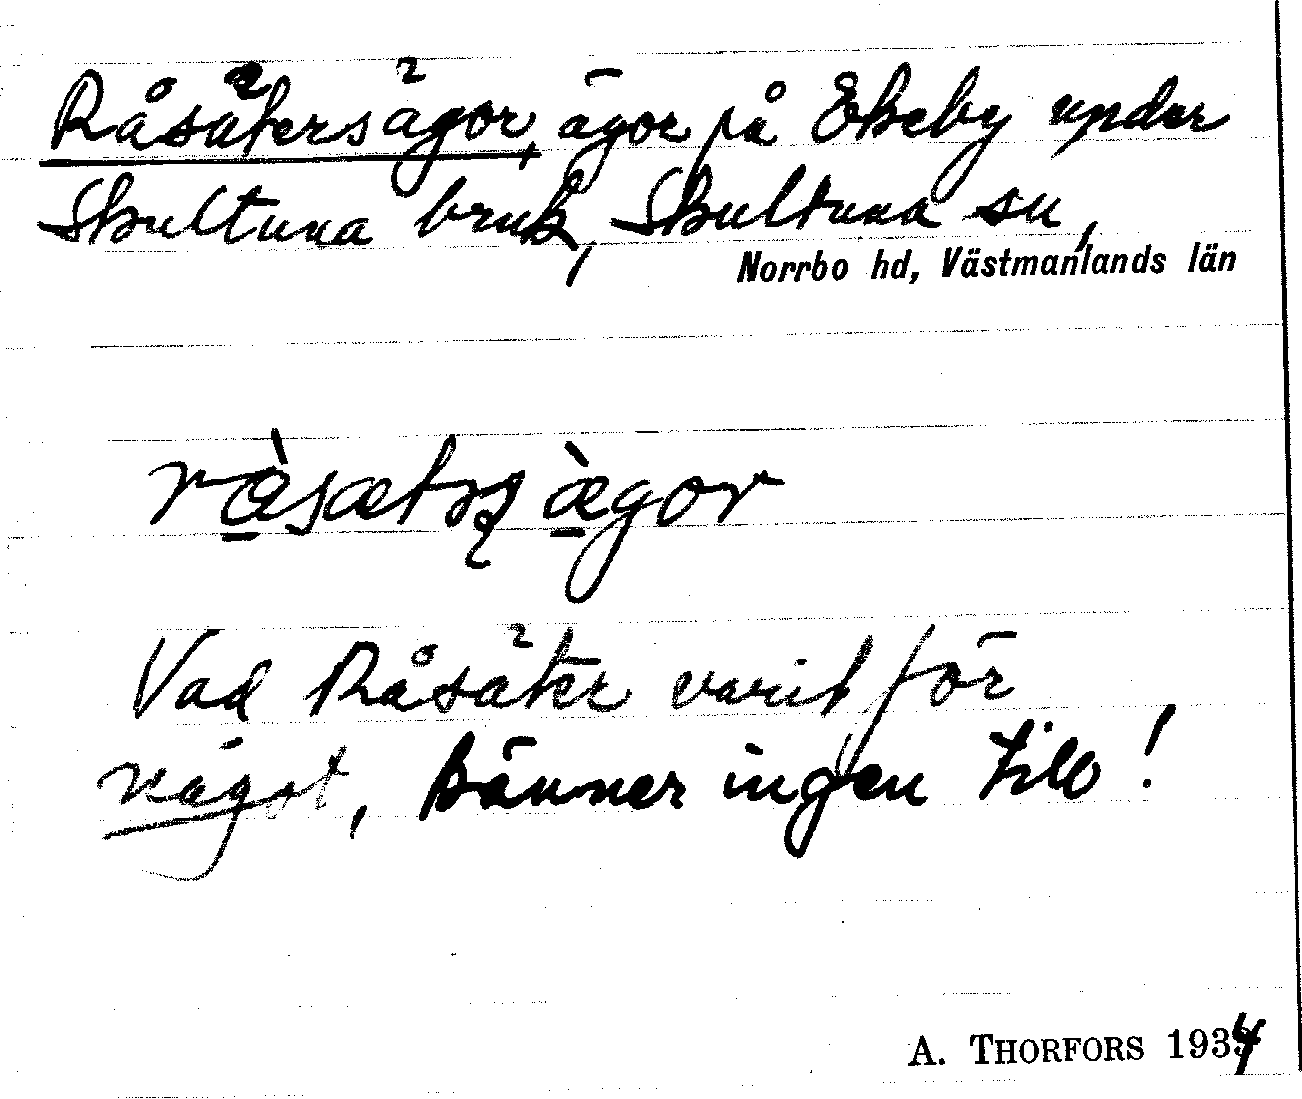 Råsätersägor, ägor på Ekeby under
Skultuna bruk, Skultuna sn,
Norrbo hd, Västmanlands län
Vad Råsäter varit för
något, känner ingen till!
A. THORFORS 1934